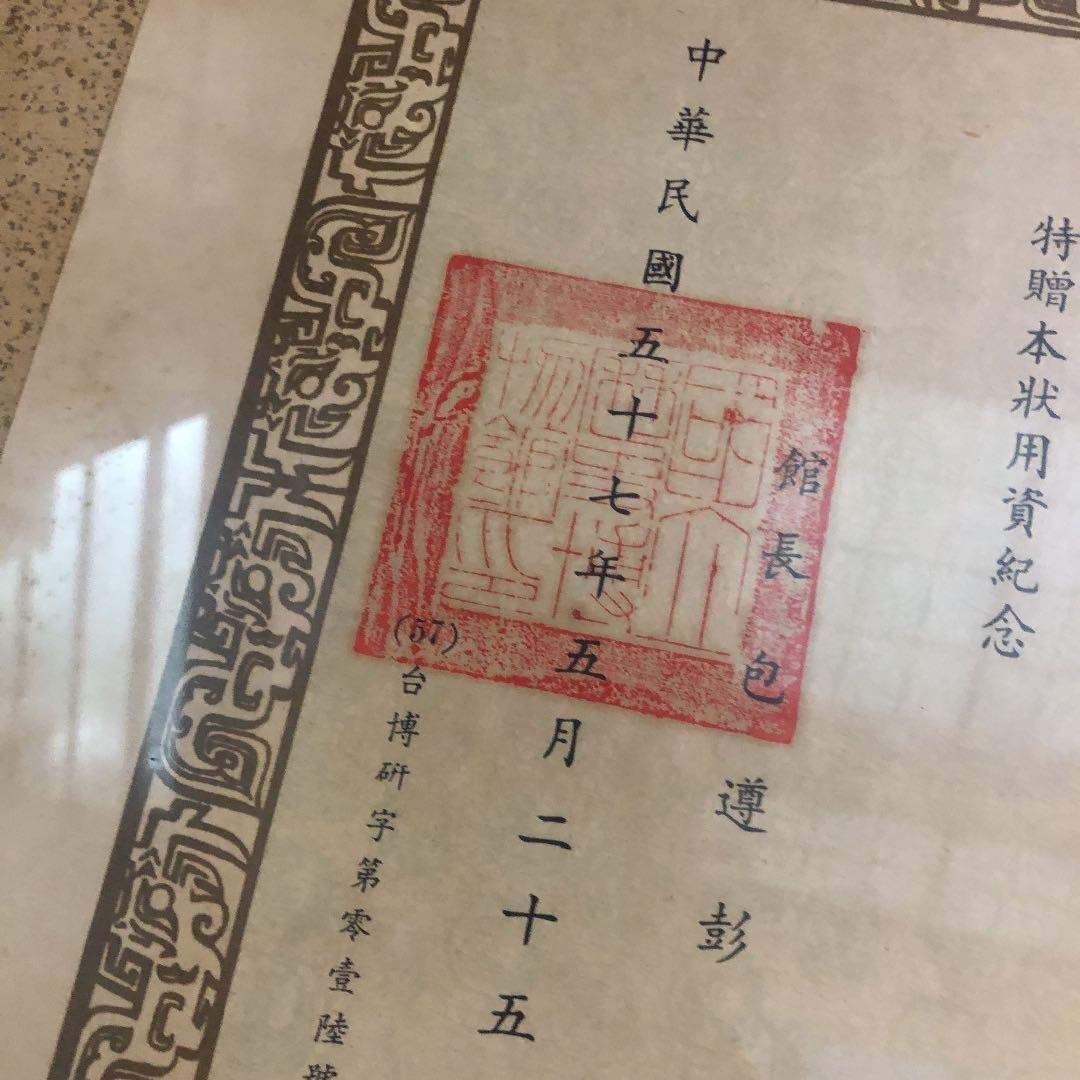 特贈本狀用資紀念
館長包遵彭
中華民國五十七年五月二十五
(57)台博研字第零壹陸號